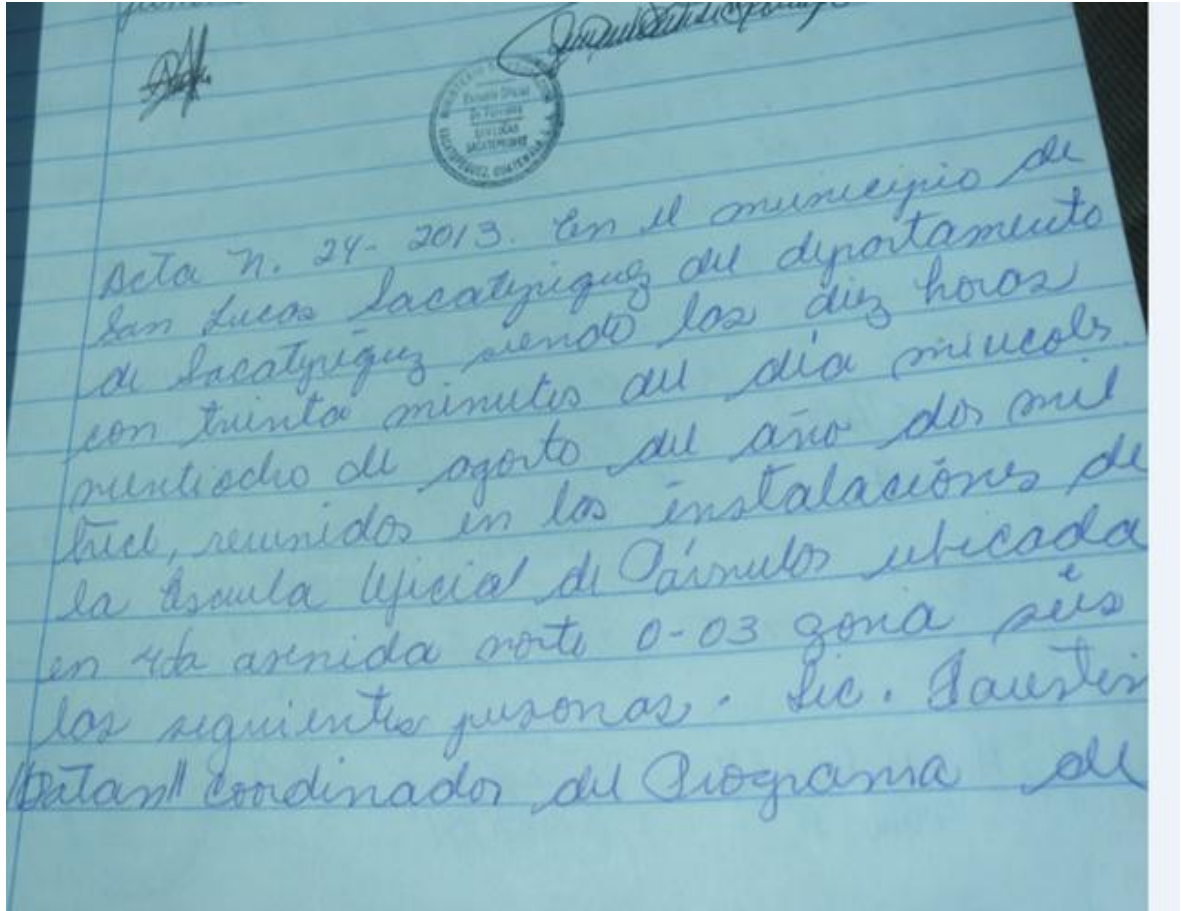 Acta n. 24-2013. En el municipio de
San Lucas Sacatepéquez del departamento
de Sacatepéquez siendo las diez horas
con treinta minutos del día miércoles
veintiocho de agosto del año dos mil
trece, reunidos en las instalaciones de
la Escuela Oficial de Párvulos ubicada
en 4ta avenida norte 0-03 zona seis
las siguientes personas. Lic. Faustin
Patan" coordinador del Programa de